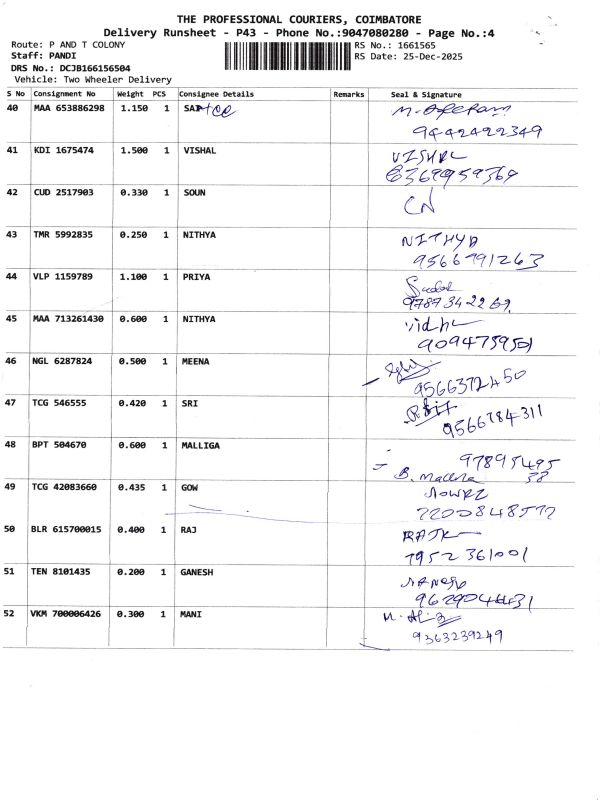 THE PROFESSIONAL COURIERS, COIMBATORE
Delivery Runsheet - P43 - Phone No.:9047080280 - Page No.:4
Route: P AND T COLONY RS No.: 1661565
Staff: PANDI RS Date: 25-Dec-2025
DRS No.: DCJB166156504
Vehicle: Two Wheeler Delivery
S No Consignment No Weight PCS Consignee Details Remarks Seal & Signature
40 MAA 653886298 1.150 1
9442422349
41 KDI 1675474 1.500 1 VISHAL VISHAL
42 CUD 2517903 0.330 1 SOUN CN
43 TMR 5992835 0.250 1 NITHYA NITHYA
9566991263
44 VLP 1159789 1.100 1 PRIYA
9789342269
45 MAA 713261430 0.600 1 NITHYA
9094759501
46 NGL 6287824 0.500 1 MEENA
9566372450
47 TCG 546555 0.420 1 SRI
9566784311
48 BPT 504670 0.600 1 MALLIGA 97895495
38
49 TCG 42083660 0.435 1 GOW
50 BLR 615700015 0.400 1 RAJ
7952361001
51 TEN 8101435 0.200 1 GANESH
52 VKM 700006426 0.300 1 MANI
9363239249